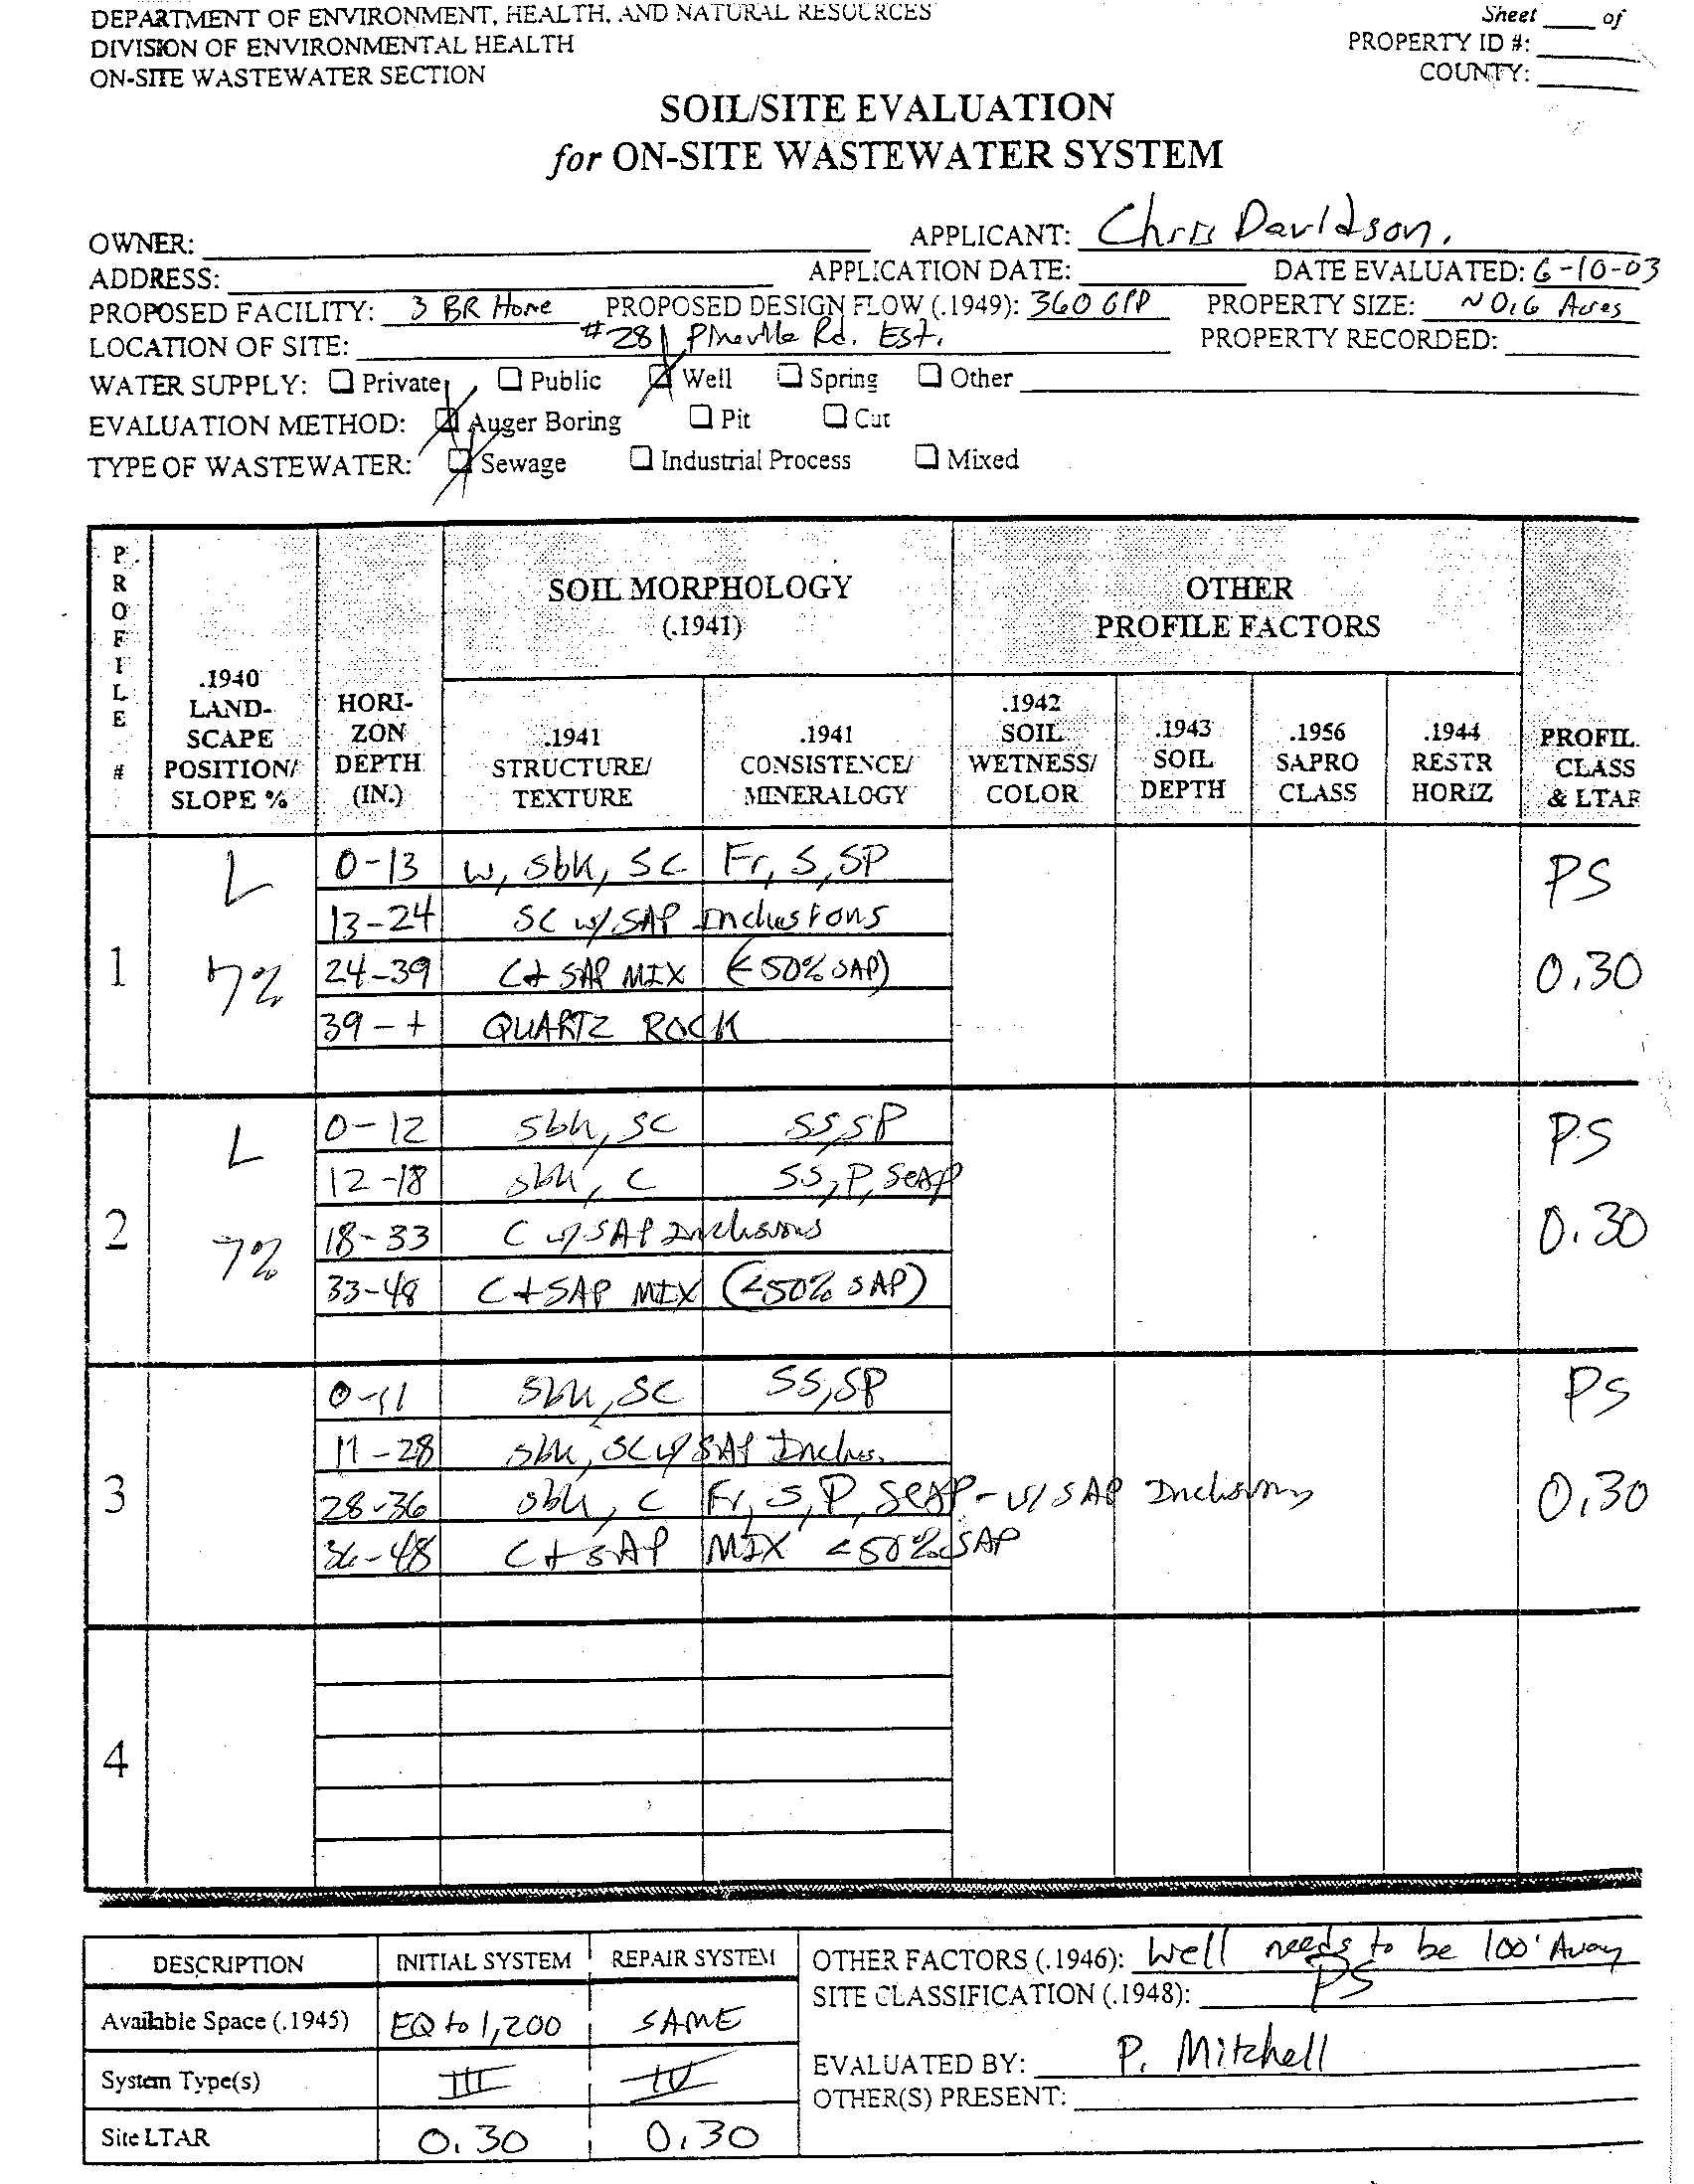 DEPARTMENT OF ENVIRONMENT, HEALTH, AND NATURAL RESOURCES
DIVISION OF ENVIRONMENTAL HEALTH
ON-SITE WASTEWATER SECTION
Sheet ____ of
PROPERTY ID #:
COUNTY:
SOIL/SITE EVALUATION
for ON-SITE WASTEWATER SYSTEM
OWNER: APPLICANT: Chris Davidson.
ADDRESS: APPLICATION DATE: DATE EVALUATED: 6-10-03
PROPOSED FACILITY: 3 BR Home PROPOSED DESIGN FLOW (.1949): 360 GPD PROPERTY SIZE: ~0.6 Acres
LOCATION OF SITE: #281 Pineville Rd. Est. PROPERTY RECORDED:
WATER SUPPLY: ☐ Private ☐ Public ☒ Well ☐ Spring ☐ Other
EVALUATION METHOD: ☒ Auger Boring ☐ Pit ☐ Cut
TYPE OF WASTEWATER: ☒ Sewage ☐ Industrial Process ☐ Mixed
PROFILE #
.1940 LAND-SCAPE POSITION/ SLOPE %
HORI-ZON DEPTH (IN.)
SOIL MORPHOLOGY (.1941)
OTHER PROFILE FACTORS
.1941 STRUCTURE/ TEXTURE
.1941 CONSISTENCE/ MINERALOGY
.1942 SOIL WETNESS/ COLOR
.1943 SOIL DEPTH
.1956 SAPRO CLASS
.1944 RESTR HORIZ
PROFIL. CLASS & LTAR
1 L 7%
0-13 w, sbk, SC Fr, S, SP PS
13-24 SC w/ SAP Inclusions
24-39 C+SAP MIX (<50% SAP) 0.30
39-+ QUARTZ ROCK
2 L 7%
0-12 sbk, SC SS, SP PS
12-18 sbk, C SS, P, SEXP
18-33 C w/ SAP Inclusions 0.30
33-48 C+SAP MIX (<50% SAP)
3
0-11 sbk, SC SS, SP PS
11-28 sbk, SC w/ SAP Inclus.
28-36 sbk, C Fr, S, P, SEXP - w/ SAP Inclusions 0.30
36-48 C+SAP MIX <50% SAP
4
DESCRIPTION INITIAL SYSTEM REPAIR SYSTEM
Available Space (.1945) EQ to 1,200 SAME
System Type(s) III IV
Site LTAR 0.30 0.30
OTHER FACTORS (.1946): Well needs to be 100' Away
SITE CLASSIFICATION (.1948): PS
EVALUATED BY: P. Mitchell
OTHER(S) PRESENT: